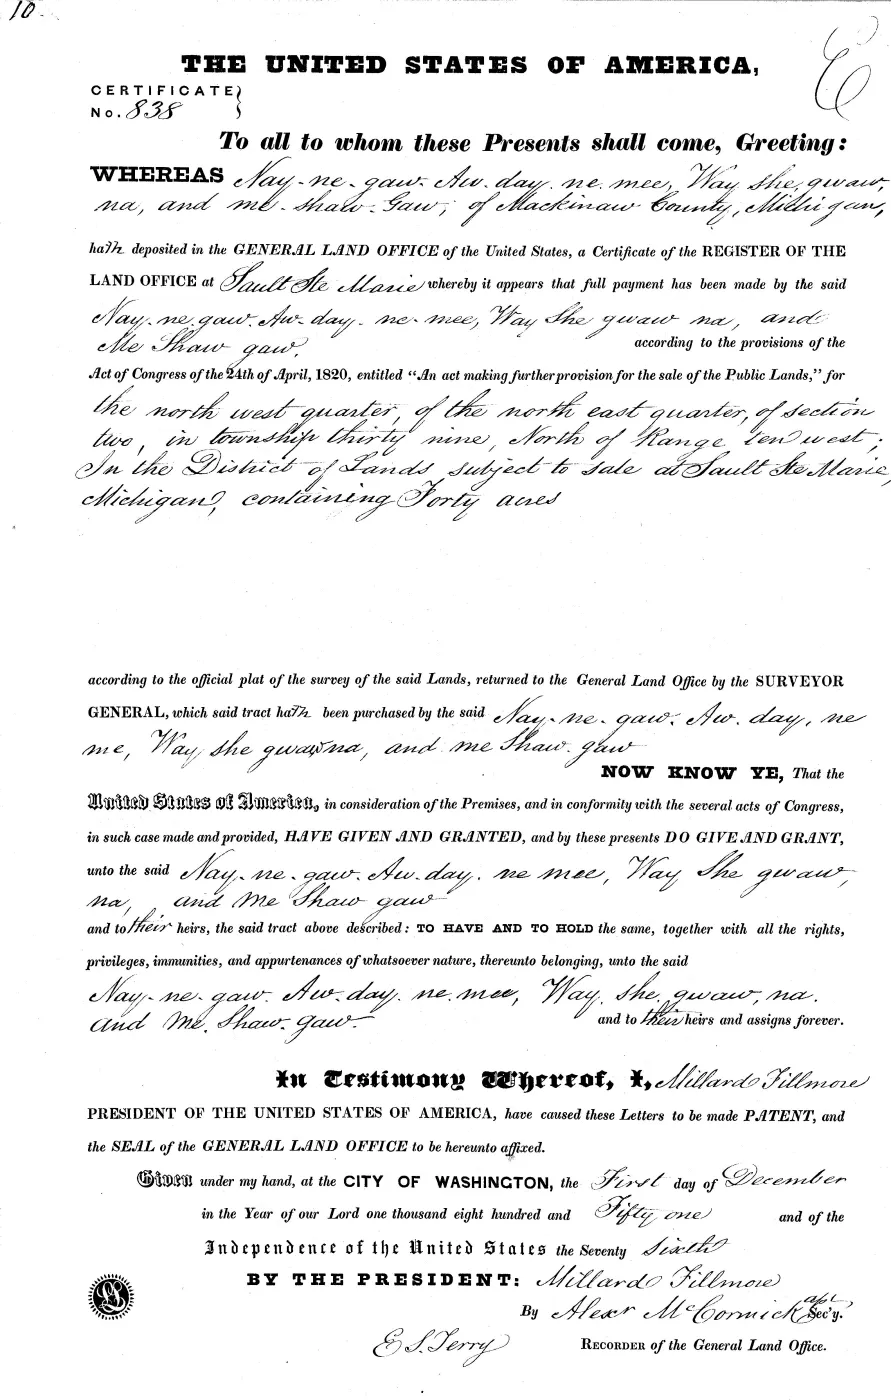 10
THE UNITED STATES OF AMERICA,
CERTIFICATE
No. 838
E
To all to whom these Presents shall come, Greeting:
WHEREAS Nay-ne-gaw-Aw-day. ne. mee, Way she, gwaw,
na, and me-shaw-Gaw, of Mackinaw County, Michigan,
hath deposited in the GENERAL LAND OFFICE of the United States, a Certificate of the REGISTER OF THE
LAND OFFICE at Sault Ste Marie whereby it appears that full payment has been made by the said
Nay-ne. gaw. Aw-day-ne-mee, Way She gwaw na, and
Me Shaw gaw. according to the provisions of the
Act of Congress of the 24th of April, 1820, entitled “An act making further provision for the sale of the Public Lands,” for
the north west quarter, of the north east quarter, of section
two, in township thirty nine, North of Range ten west;
In the District of Lands subject to sale at Sault Ste Marie,
Michigan, containing Forty acres
according to the official plat of the survey of the said Lands, returned to the General Land Office by the SURVEYOR
GENERAL, which said tract hath been purchased by the said Nay-ne-gaw. Aw. day, ne
me, Way she gwaw, na, and me Shaw. gaw
NOW KNOW YE, That the
United States of America, in consideration of the Premises, and in conformity with the several acts of Congress,
in such case made and provided, HAVE GIVEN AND GRANTED, and by these presents DO GIVE AND GRANT,
unto the said Nay-ne-gaw. Aw-day. ne mee, Way She gwaw,
na, and Me Shaw gaw
and to their heirs, the said tract above described: TO HAVE AND TO HOLD the same, together with all the rights,
privileges, immunities, and appurtenances of whatsoever nature, thereunto belonging, unto the said
Nay-ne-gaw. Aw-day. ne. mee, Way. she, gwaw, na.
and Me. Shaw-gaw. and to their heirs and assigns forever.
In Testimony Whereof, I, Millard Fillmore
PRESIDENT OF THE UNITED STATES OF AMERICA, have caused these Letters to be made PATENT, and
the SEAL of the GENERAL LAND OFFICE to be hereunto affixed.
Given under my hand, at the CITY OF WASHINGTON, the First day of December
in the Year of our Lord one thousand eight hundred and Fifty one and of the
Independence of the United States the Seventy Sixth
BY THE PRESIDENT: Millard Fillmore
By Alexr McCormick Sec'y.
E S. Terry RECORDER of the General Land Office.